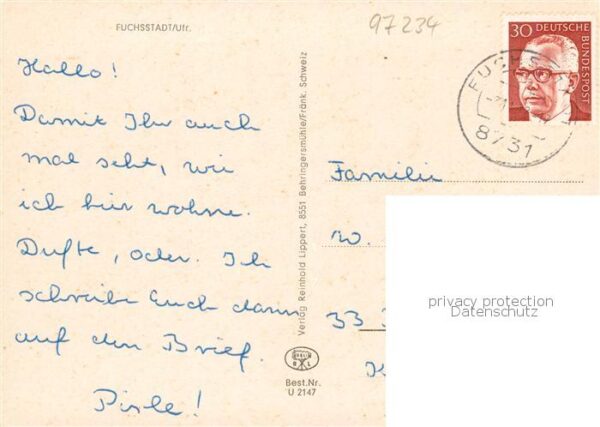 FUCHSSTADT/Ufr.
97234
Hallo!
Damit Ihr auch
mal seht, wie
ich hier wohne.
Dufte, oder. Ich
schreibe Euch dann
auf den Brief.
Verlag Reinhold Lippert, 8551 Behringersmühle/Fränk. Schweiz
BERLIN
Best.Nr.
U 2147
30 DEUTSCHE BUNDESPOST
FUCHSS
8731
Familie
W.
33
privacy protection
Datenschutz